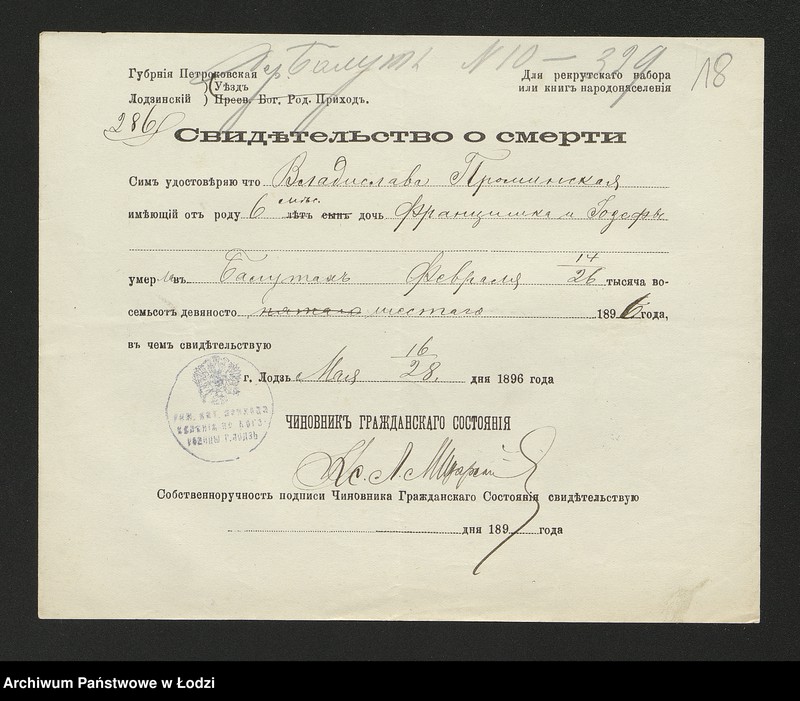 гр. Балутъ N 10 — 329
18
Губернія Петроковская
Уѣздъ
Лодзинскій
Преев. Бог. Род. Приходъ.
Для рекрутскаго набора
или книгъ народонаселенія
286
Свидѣтельство о смерти
Симъ удостовѣряю что Владислава Проминская
имѣющій отъ роду 6 мѣс. лѣтъ сынъ дочь Францишка и Юзефы
умерла въ Балутахъ Февраля 14/26 тысяча во-
семьсотъ девяносто пятаго шестаго 1896 года,
въ чемъ свидѣтельствую
г. Лодзь Мая 16/28. дня 1896 года
ЧИНОВНИКЪ ГРАЖДАНСКАГО СОСТОЯНІЯ
Кс. Л.
Собственноручность подписи Чиновника Гражданскаго Состоянія свидѣтельствую
дня 189 года
Archiwum Państwowe w Łodzi